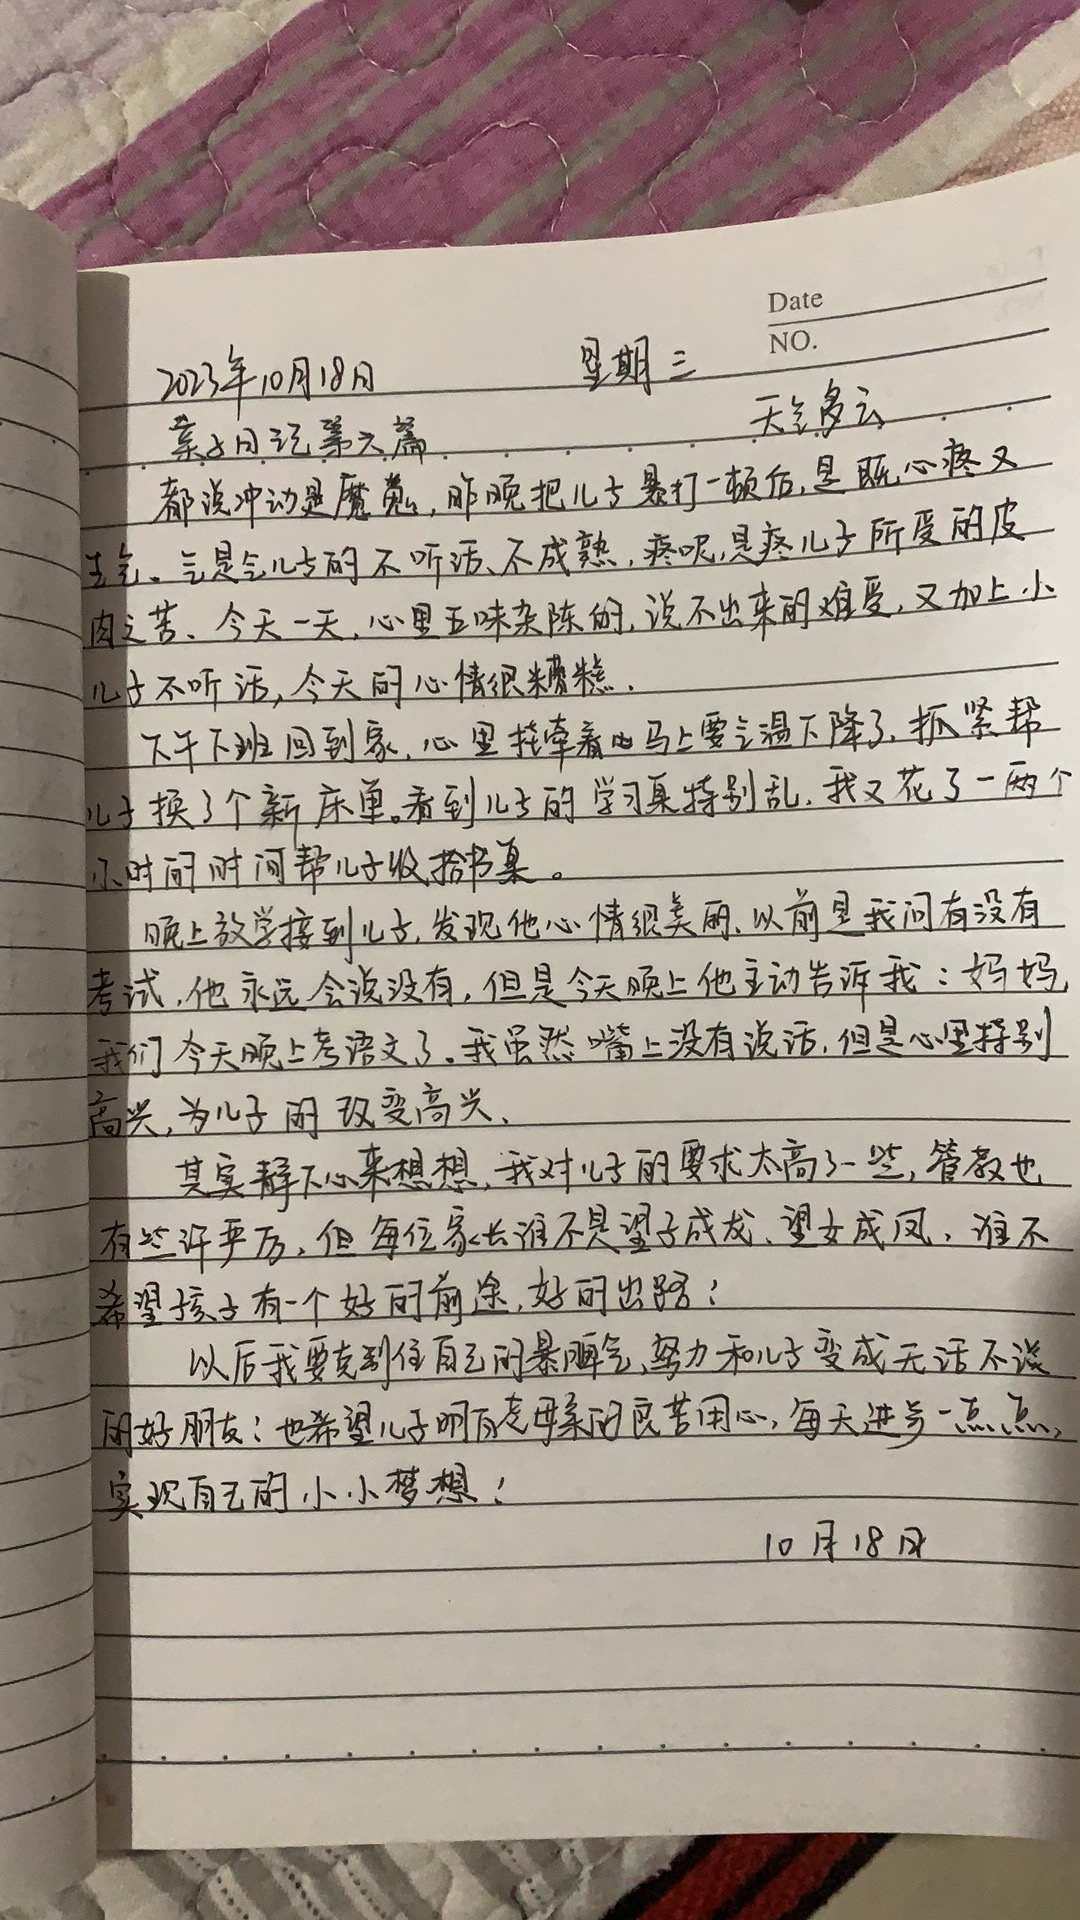 Date
NO.
2023年10月18日 星期三
亲子日记第六篇 天气多云
都说冲动是魔鬼，昨晚把儿子暴打一顿后，是既心疼又
生气。气是气儿子的不听话、不成熟，疼呢，是疼儿子所受的皮
肉之苦、今天一天，心里五味杂陈的，说不出来的难受，又加上小
儿子不听话，今天的心情很糟糕.
下午下班回到家，心里牵着马上要气温下降了，抓紧帮
儿子换了个新床单。看到儿子的学习桌特别乱，我又花了一两个
小时的时间帮儿子收拾书桌。
晚上放学接到儿子，发现他心情很美丽、以前是我问有没有
考试，他永远会说没有，但是今天晚上他主动告诉我：妈妈，
我们今天晚上考语文了。我虽然嘴上没有说话，但是心里特别
高兴，为儿子的改变高兴、
其实静下心来想想，我对儿子的要求太高了一些，管教也
有些许严厉，但每位家长谁不是望子成龙、望女成凤，谁不
希望孩子有一个好的前途，好的出路！
以后我要克制住自己的暴脾气，努力和儿子变成无话不谈
的好朋友！也希望儿子明白老母亲的良苦用心，每天进步一点点，
实现自己的小小梦想！
10月18日